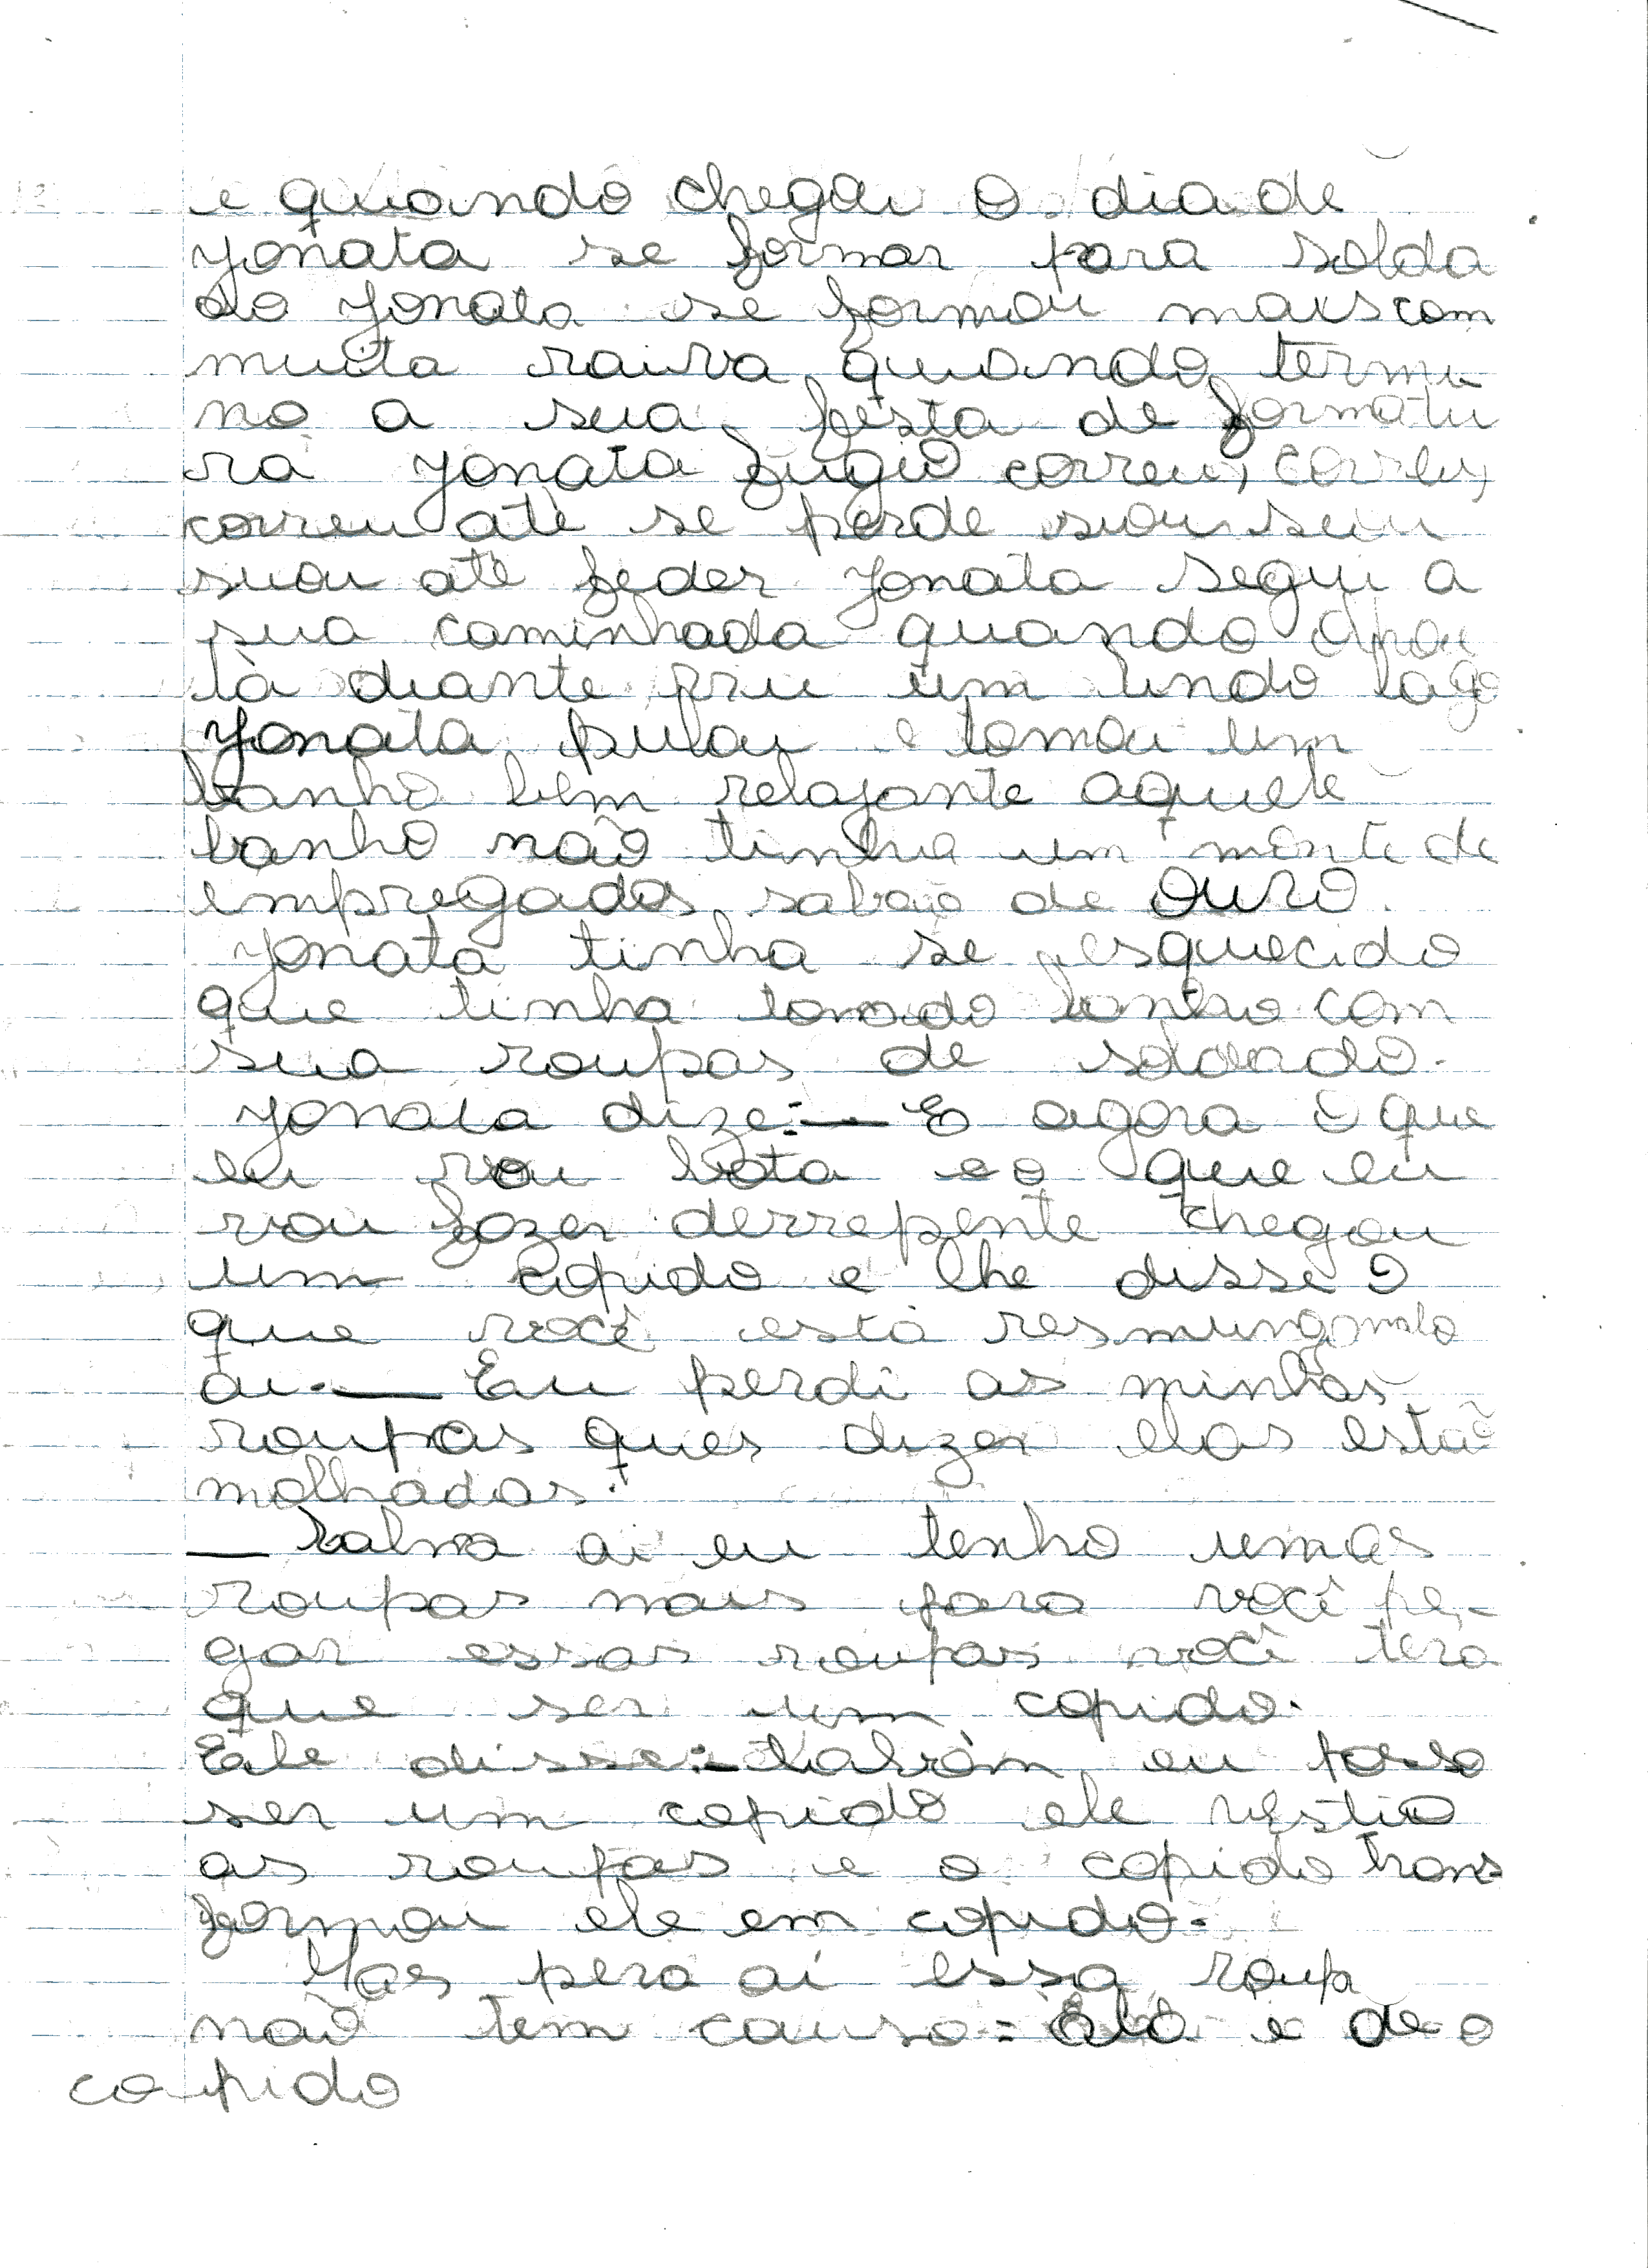 e quando chegou o dia de
Jonata se formar para solda
do Jonata se formou mais com
muita raiva quando termi
no a sua festa de formatu
ra Jonata fugio correu, correu,
correu até se perde suou suou
suou até feder Jonata segui a
sua caminhada quando
lá diante um lindo lago
Jonata pulou e tomou um
banho bem relajante aquele
banho não tinha um monte de
empregados, sabão de ouro.
Jonata tinha se esquecido
que tinha tomado banho com
sua roupas de soldado.
Jonata dize:— E agora o que
eu vou bota e o que eu
vou fazer derrepente chegou
um copido e lhe disse o
que você está resmungando
ai.— Eu perdi as minhas
roupas quer dizer elas estão
molhadas.
— kalma ai eu tenho umas
roupas mais para você pe-
gar essas roupas você tera
que ser um copido.
Ele disse:— eu posso
ser um copido ele vestio
as roupas e o copido trans
formou ele em copido.
Mas pera aí essa roupa
não tem causa: Ela e de o
copido